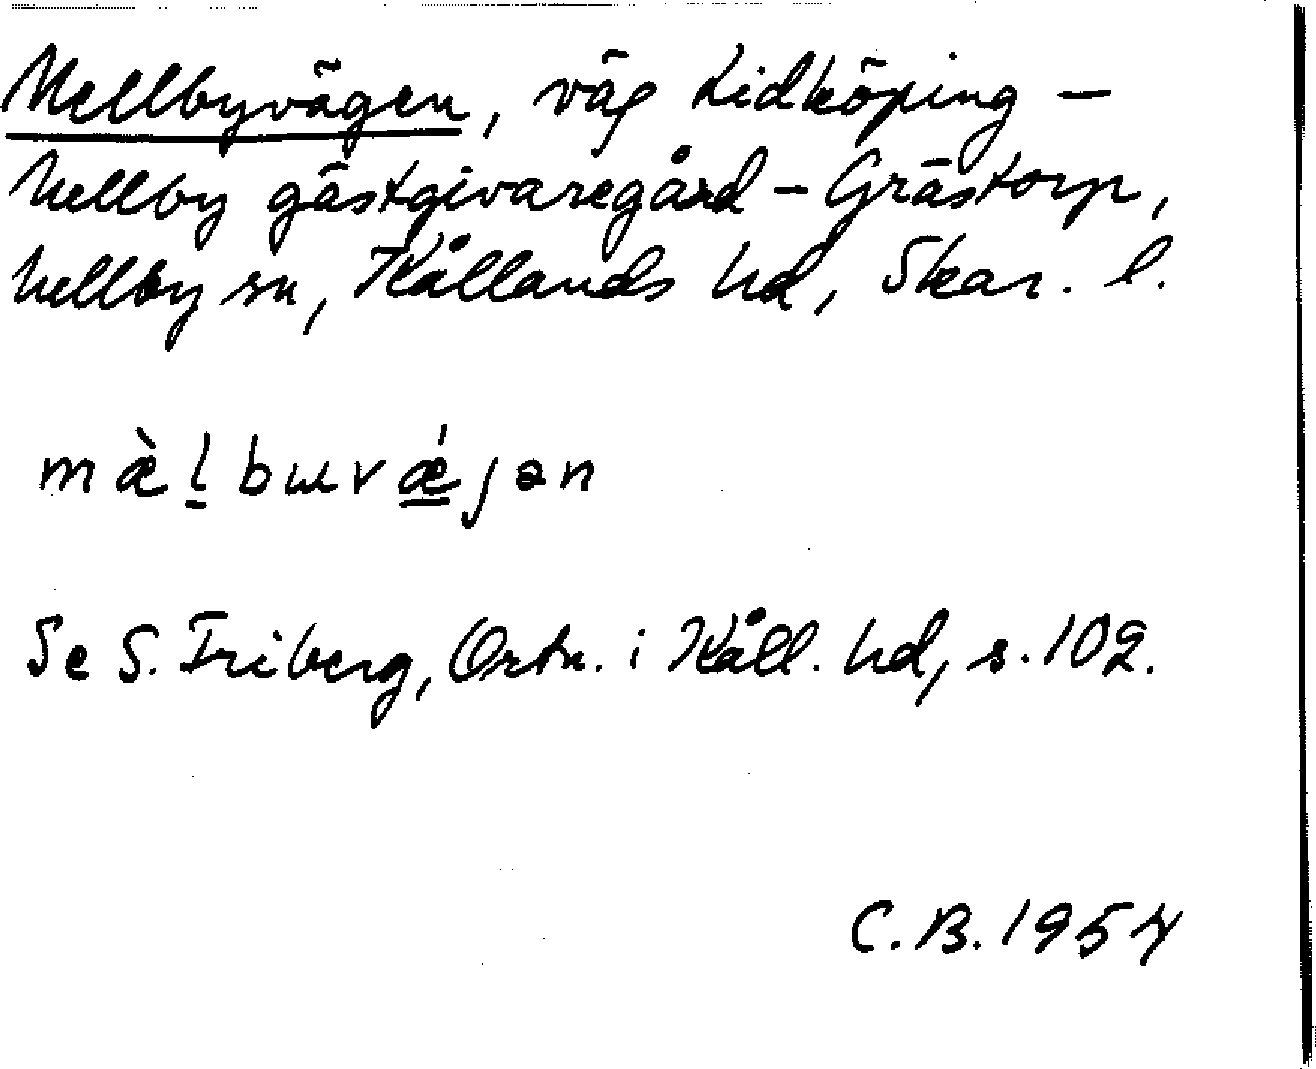 Mellbyvägen, väg Lidköping –
Mellby gästgivaregård – Grästorp,
Mellby sn, Kållands hd, Skar. l.
mæ̀l̲buɯvǽ̲jən
Se S. Friberg, Ortn. i Kåll. hd, s. 102.
C.B. 1954